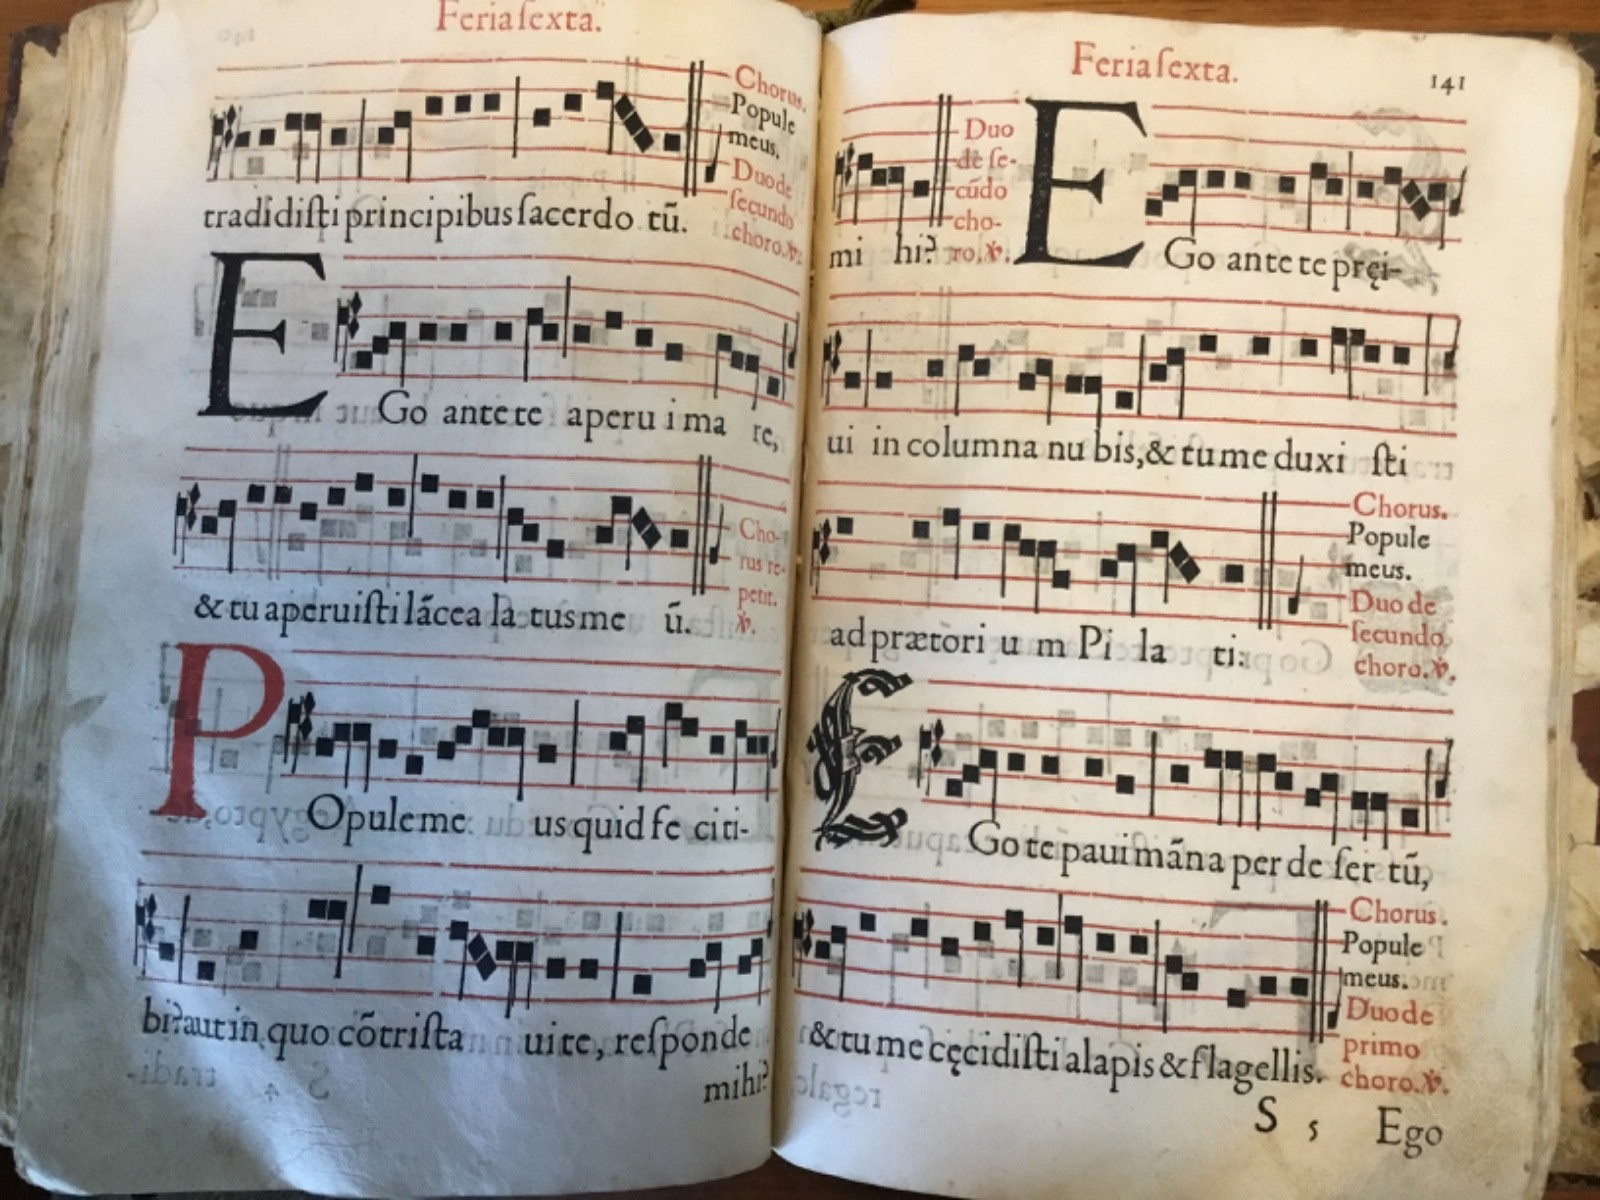 Feria ſexta.
Chorus.
Popule
meus.
Duo de
ſecundo
choro. ℣.
tradidiſti principibus ſacerdo tū.
EGo ante te aperu i ma re,
& tu aperuiſti lācea la tus me ū.
Cho-
rus re-
petit.
℣.
POpule me us quid fe ci ti-
bi? aut in quo cōtriſta ui te, reſponde
mihi?
Feria ſexta.
141
Duo
de ſe-
cūdo
cho-
ro. ℣.
mi hi?
EGo ante te pręi-
ui in columna nu bis, & tu me duxi ſti
Chorus.
Popule
meus.
Duo de
ſecundo
choro. ℣.
ad prætori u m Pi la ti:
EGo te paui māna per de ſer tū,
Chorus.
Popule
meus.
Duo de
primo
choro. ℣.
& tu me cęcidiſti alapis & flagellis.
S 5 Ego